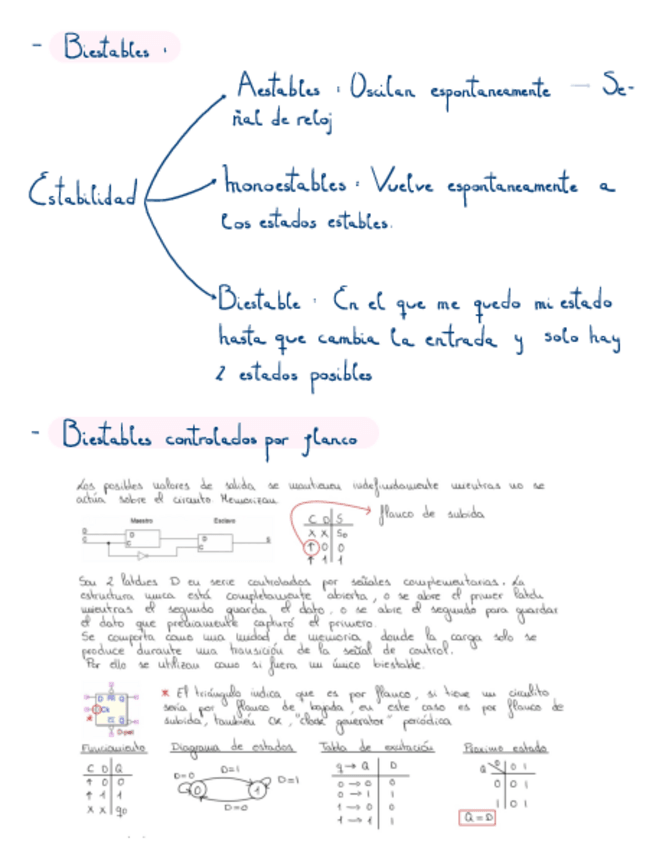 - Biestables :
Aestables : Oscilan espontaneamente — Se-
ñal de reloj
Estabilidad
Monoestables : Vuelve espontaneamente a
los estados estables.
Biestable : En el que me quedo mi estado
hasta que cambia la entrada y solo hay
2 estados posibles
- Biestables controlados por flanco
Los posibles valores de salida se mantienen indefinidamente mientras no se
actúa sobre el circuito. Memorizan
flanco de subida
Maestro Esclavo
D D D S
C C C
C D S
X X S0
↑ 0 0
↑ 1 1
Son 2 latches D en serie controlados por señales complementarias. La
estructura nunca está completamente abierta, o se abre el primer latch
mientras el segundo guarda el dato, o se abre el segundo para guardar
el dato que previamente capturó el primero.
Se comporta como una unidad de memoria donde la carga solo se
produce durante una transición de la señal de control.
Por ello se utilizan como si fuera un único biestable.
* El triángulo indica que es por flanco, si tiene un circulito
sería por flanco de bajada, en este caso es por flanco de
subida, también CK, "clock generator" periódica
Funcionamiento Diagrama de estados Tabla de excitación Próximo estado
C D Q
↑ 0 0
↑ 1 1
X X q0
D=0 D=1 D=1
0 1
D=0
q → Q D
0 → 0 0
0 → 1 1
1 → 0 0
1 → 1 1
Q D 0 1
0 0 1
1 0 1
Q = D